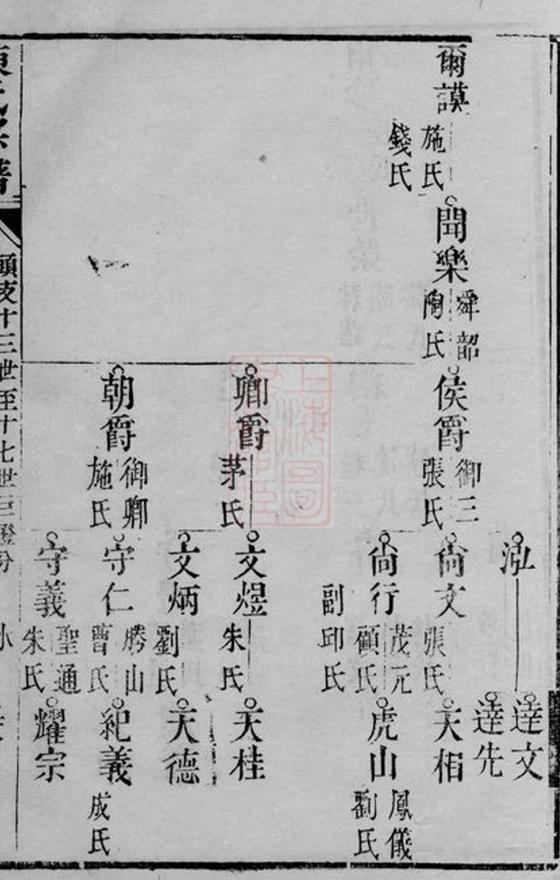 爾謨
施氏
錢氏
聞樂
舜韶
陶氏
侯爵
御三
張氏
卿爵
茅氏
朝爵
御卿
施氏
泓
尙文
張氏
尙行
茂元
顧氏
副邱氏
文煜
朱氏
文炳
劉氏
守仁
勝山
曹氏
守義
聖通
朱氏
達文
達先
天相
虎山
鳳儀
劉氏
天桂
天德
紀義
成氏
耀宗
氏宗譜
頭支十三世至十七世巨證分